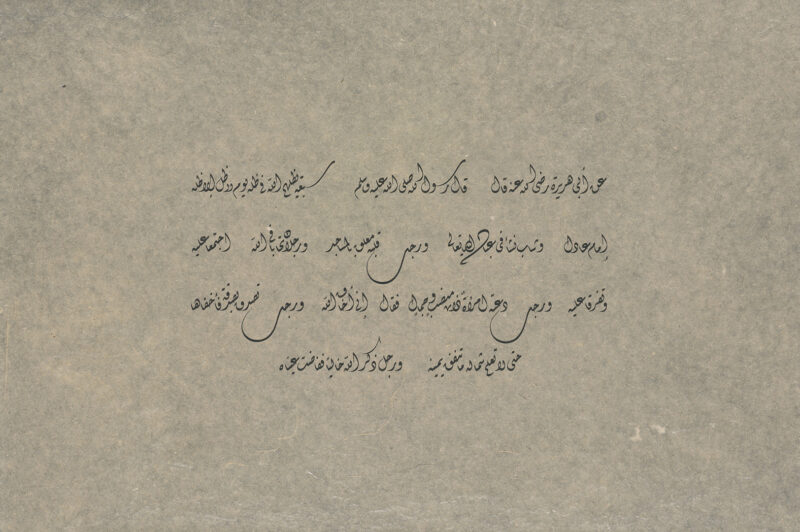 عن أبي هريرة رضي الله عنه قال قال رسول الله صلى الله عليه وسلم سبعة يظلهم الله في ظله يوم لا ظل إلا ظله
إمام عادل وشاب نشأ في عبادة الله تعالى ورجل قلبه معلق بالمساجد ورجلان تحابا في الله اجتمعا عليه
وتفرقا عليه ورجل دعته امرأة ذات منصب وجمال فقال إني أخاف الله ورجل تصدق بصدقة فأخفاها
حتى لا تعلم شماله ما تنفق يمينه ورجل ذكر الله خاليا ففاضت عيناه